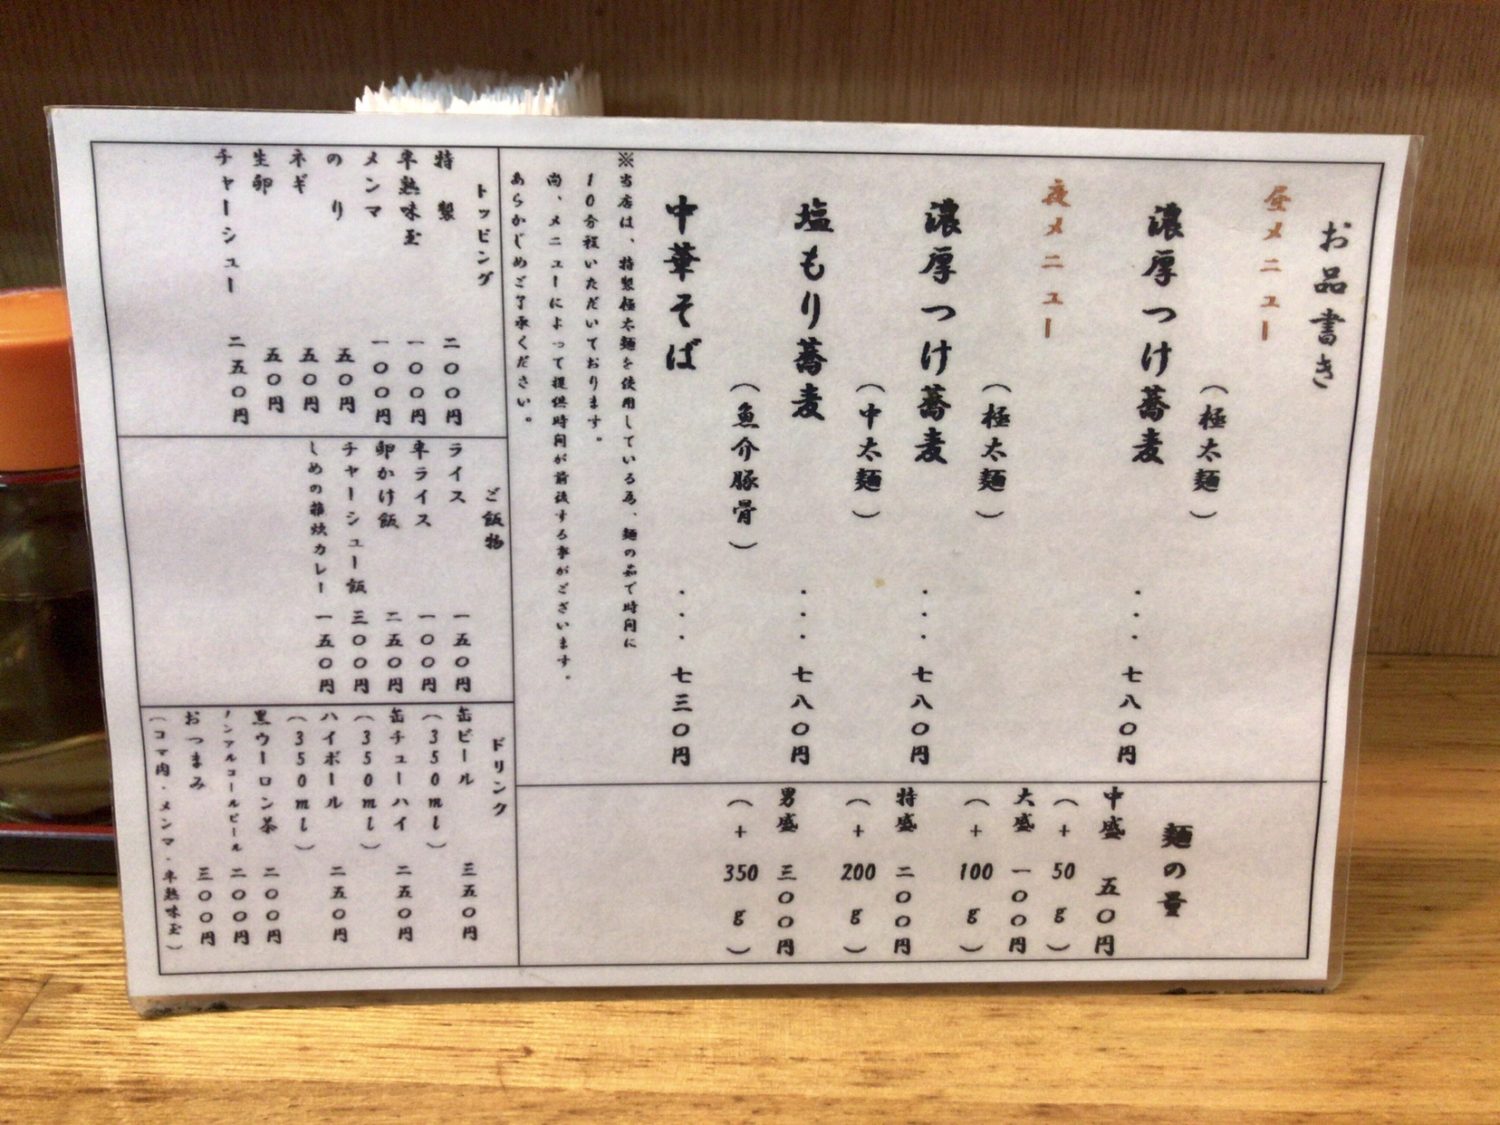 お品書き
昼メニュー
濃厚つけ蕎麦
（極太麺）
・・・七八〇円
夜メニュー
濃厚つけ蕎麦
（極太麺）
・・・七八〇円
塩もり蕎麦
（中太麺）
・・・七八〇円
中華そば
（魚介豚骨）
・・・七三〇円
※当店は、特製極太麺を使用している為、麺の茹で時間に
10分程いただいております。
尚、メニューによって提供時間が前後する事がございます。
あらかじめご了承ください。
麺の量
中盛 五〇円
（+50g）
大盛 一〇〇円
（+100g）
特盛 二〇〇円
（+200g）
男盛 三〇〇円
（+350g）
トッピング
特製 二〇〇円
半熟味玉 一〇〇円
メンマ 一〇〇円
のり 五〇円
ネギ 五〇円
生卵 五〇円
チャーシュー 二五〇円
ご飯物
ライス 一五〇円
半ライス 一〇〇円
卵かけ飯 二五〇円
チャーシュー飯 三〇〇円
しめの雑炊カレー 一五〇円
ドリンク
缶ビール 三五〇円
（350ml）
缶チューハイ 二五〇円
（350ml）
ハイボール 二五〇円
（350ml）
黒ウーロン茶 二〇〇円
ノンアルコールビール 二〇〇円
おつまみ 三〇〇円
（コマ肉・メンマ・半熟味玉）